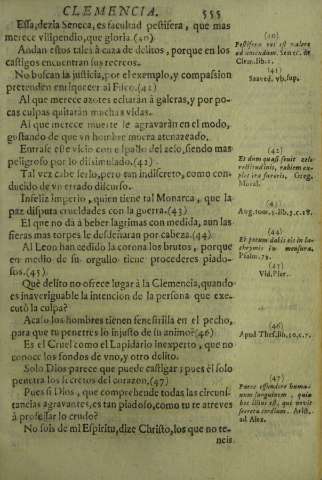 CLEMENCIA. 555
Essa, dezia Seneca, es facultad pestifera, que mas
merece vilipendio, que gloria. (40)
Andan estos tales à caza de delitos, porque en los
castigos encuentran sus recreos.
No buscan la justicia, por el exemplo, y compassion
pretenden enriquecer al Fisco. (41)
Al que merece azotes echaràn à galeras, y por po-
cas culpas quitaràn muchas vidas.
Al que merece muerte le agravaràn en el modo,
gostando de que vn hombre muera atenazeado.
Entrase este vicio con el palio del zelo, siendo mas
peligroso por lo dissimulado. (42)
Tal vez cabe serlo, pero tan indiscreto, como con-
ducido de vn errado discurso.
Infeliz imperio, quien tiene tal Monarca, que la
paz disputa crueldades con la guerra. (43)
El que no dà à beber lagrimas con medida, aun las
fieras mas torpes le desdeñaràn por cabeza. (44)
Al Leon han cedido la corona los brutos, porque
en medio de su orgullo tiene procederes piado-
sos. (45)
Què delito no ofrece lugar à la Clemencia, quando
es inaveriguable la intencion de la persona que exe-
cutò la culpa?
Acaso los hombres tienen fenestrilla en el pecho,
para que tu penetres lo injusto de su animo? (46)
Es el Cruel como el Lapidario inexperto, que no
conoce los fondos de vno, y otro delito.
Solo Dios parece que puede castigar; pues èl solo
penetra los secretos del corazon. (47)
Pues si Dios, que comprehende todas las circuns-
tancias agravantes, es tan piadoso, como tu te atreves
à professar lo crudo?
No sois de mi Espiritu, dize Christo, los que no te-
neis
(40)
Pestifera vis est valere
ad nocendum. Senec. de
Clem. lib. 1.
(41)
Saaved. vb. sup.
(42)
Et dum quasi servit zelo
rectitudinis, rabiem ex-
plet ira furoris. Greg.
Moral.
(43)
Aug. tom. 5. lib. 3. c. 18.
(44)
Et potum dabis eis in la-
chrymis in mensura.
Psalm. 79.
(45)
Vid. Pier.
(46)
Apud Thes. lib. 10. c. 7.
(47)
Parce effundere huma-
num sanguinem, quia
hoc illius est, qui novit
secreta cordium. Arist.
ad Alex.